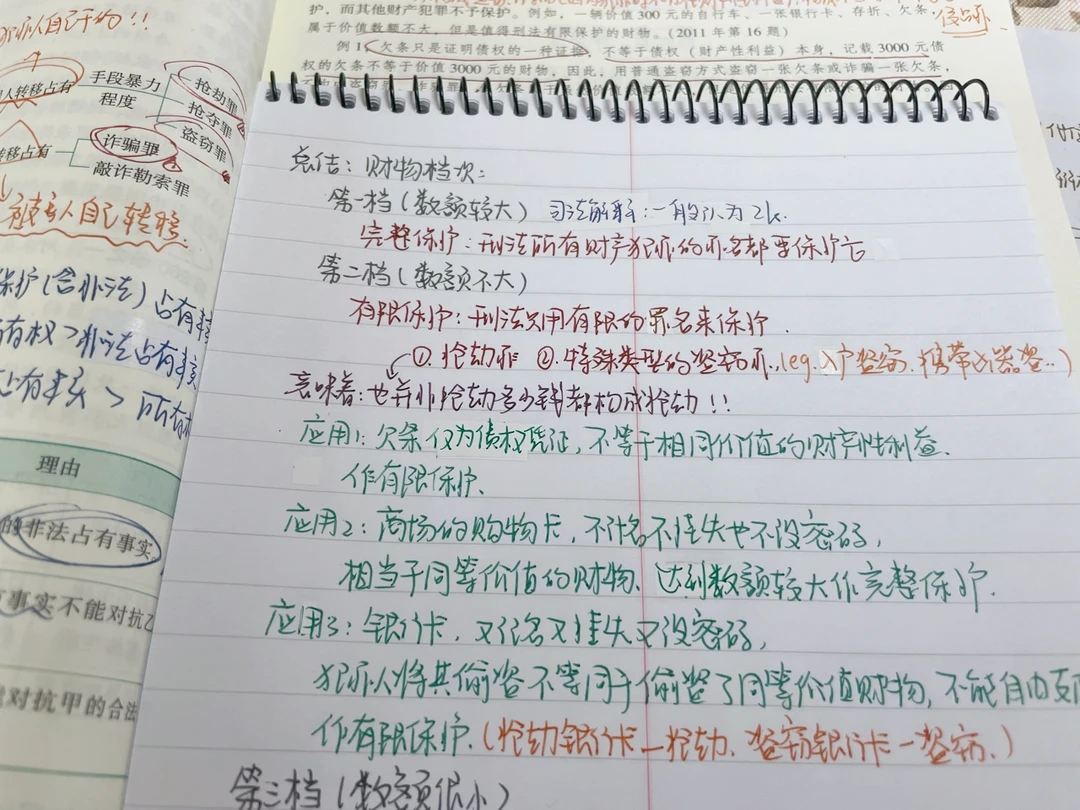 护，而其他财产犯罪不予保护。例如，一辆价值300元的自行车、一张银行卡、存折、欠条，
属于价值数额不大，但是值得刑法有限保护的财物。(2011年第16题)
例1，欠条只是证明债权的一种证据，不等于债权（财产性利益）本身，记载3000元债
权的欠条不等于价值3000元的财物，因此，用普通盗窃方式盗窃一张欠条或诈骗一张欠条，
人转移占有
手段暴力
程度
抢劫罪
抢夺罪
盗窃罪
转移占有
诈骗罪
敲诈勒索罪
被害人自己转移
保护(含非法)占有事实
有权>非法占有事实
占有事实>所有权
理由
的非法占有事实
事实不能对抗乙
对抗甲的合法
总结：财物档次：
第一档(数额较大) 司法解释：一般认为2k.
完整保护：刑法所有财产犯罪的罪名都要保护它
第二档(数额不大)
有限保护：刑法只用有限的罪名来保护.
①.抢劫罪 ②.特殊类型的盗窃罪.(eg.入户盗窃.携带凶器盗..)
意味着：也并非抢劫多少钱都构成抢劫!!
应用1：欠条仅为债权凭证,不等于相同价值的财产性利益.
作有限保护.
应用2：商场的购物卡,不记名不挂失也不设密码,
相当于同等价值的财物、达到数额较大作完整保护.
应用3：银行卡,又记名又挂失又设密码,
犯罪人将其偷盗不等同于偷盗了同等价值财物,不能自由支
作有限保护.(抢劫银行卡—抢劫、盗窃银行卡—盗窃.)
第三档(数额很小)